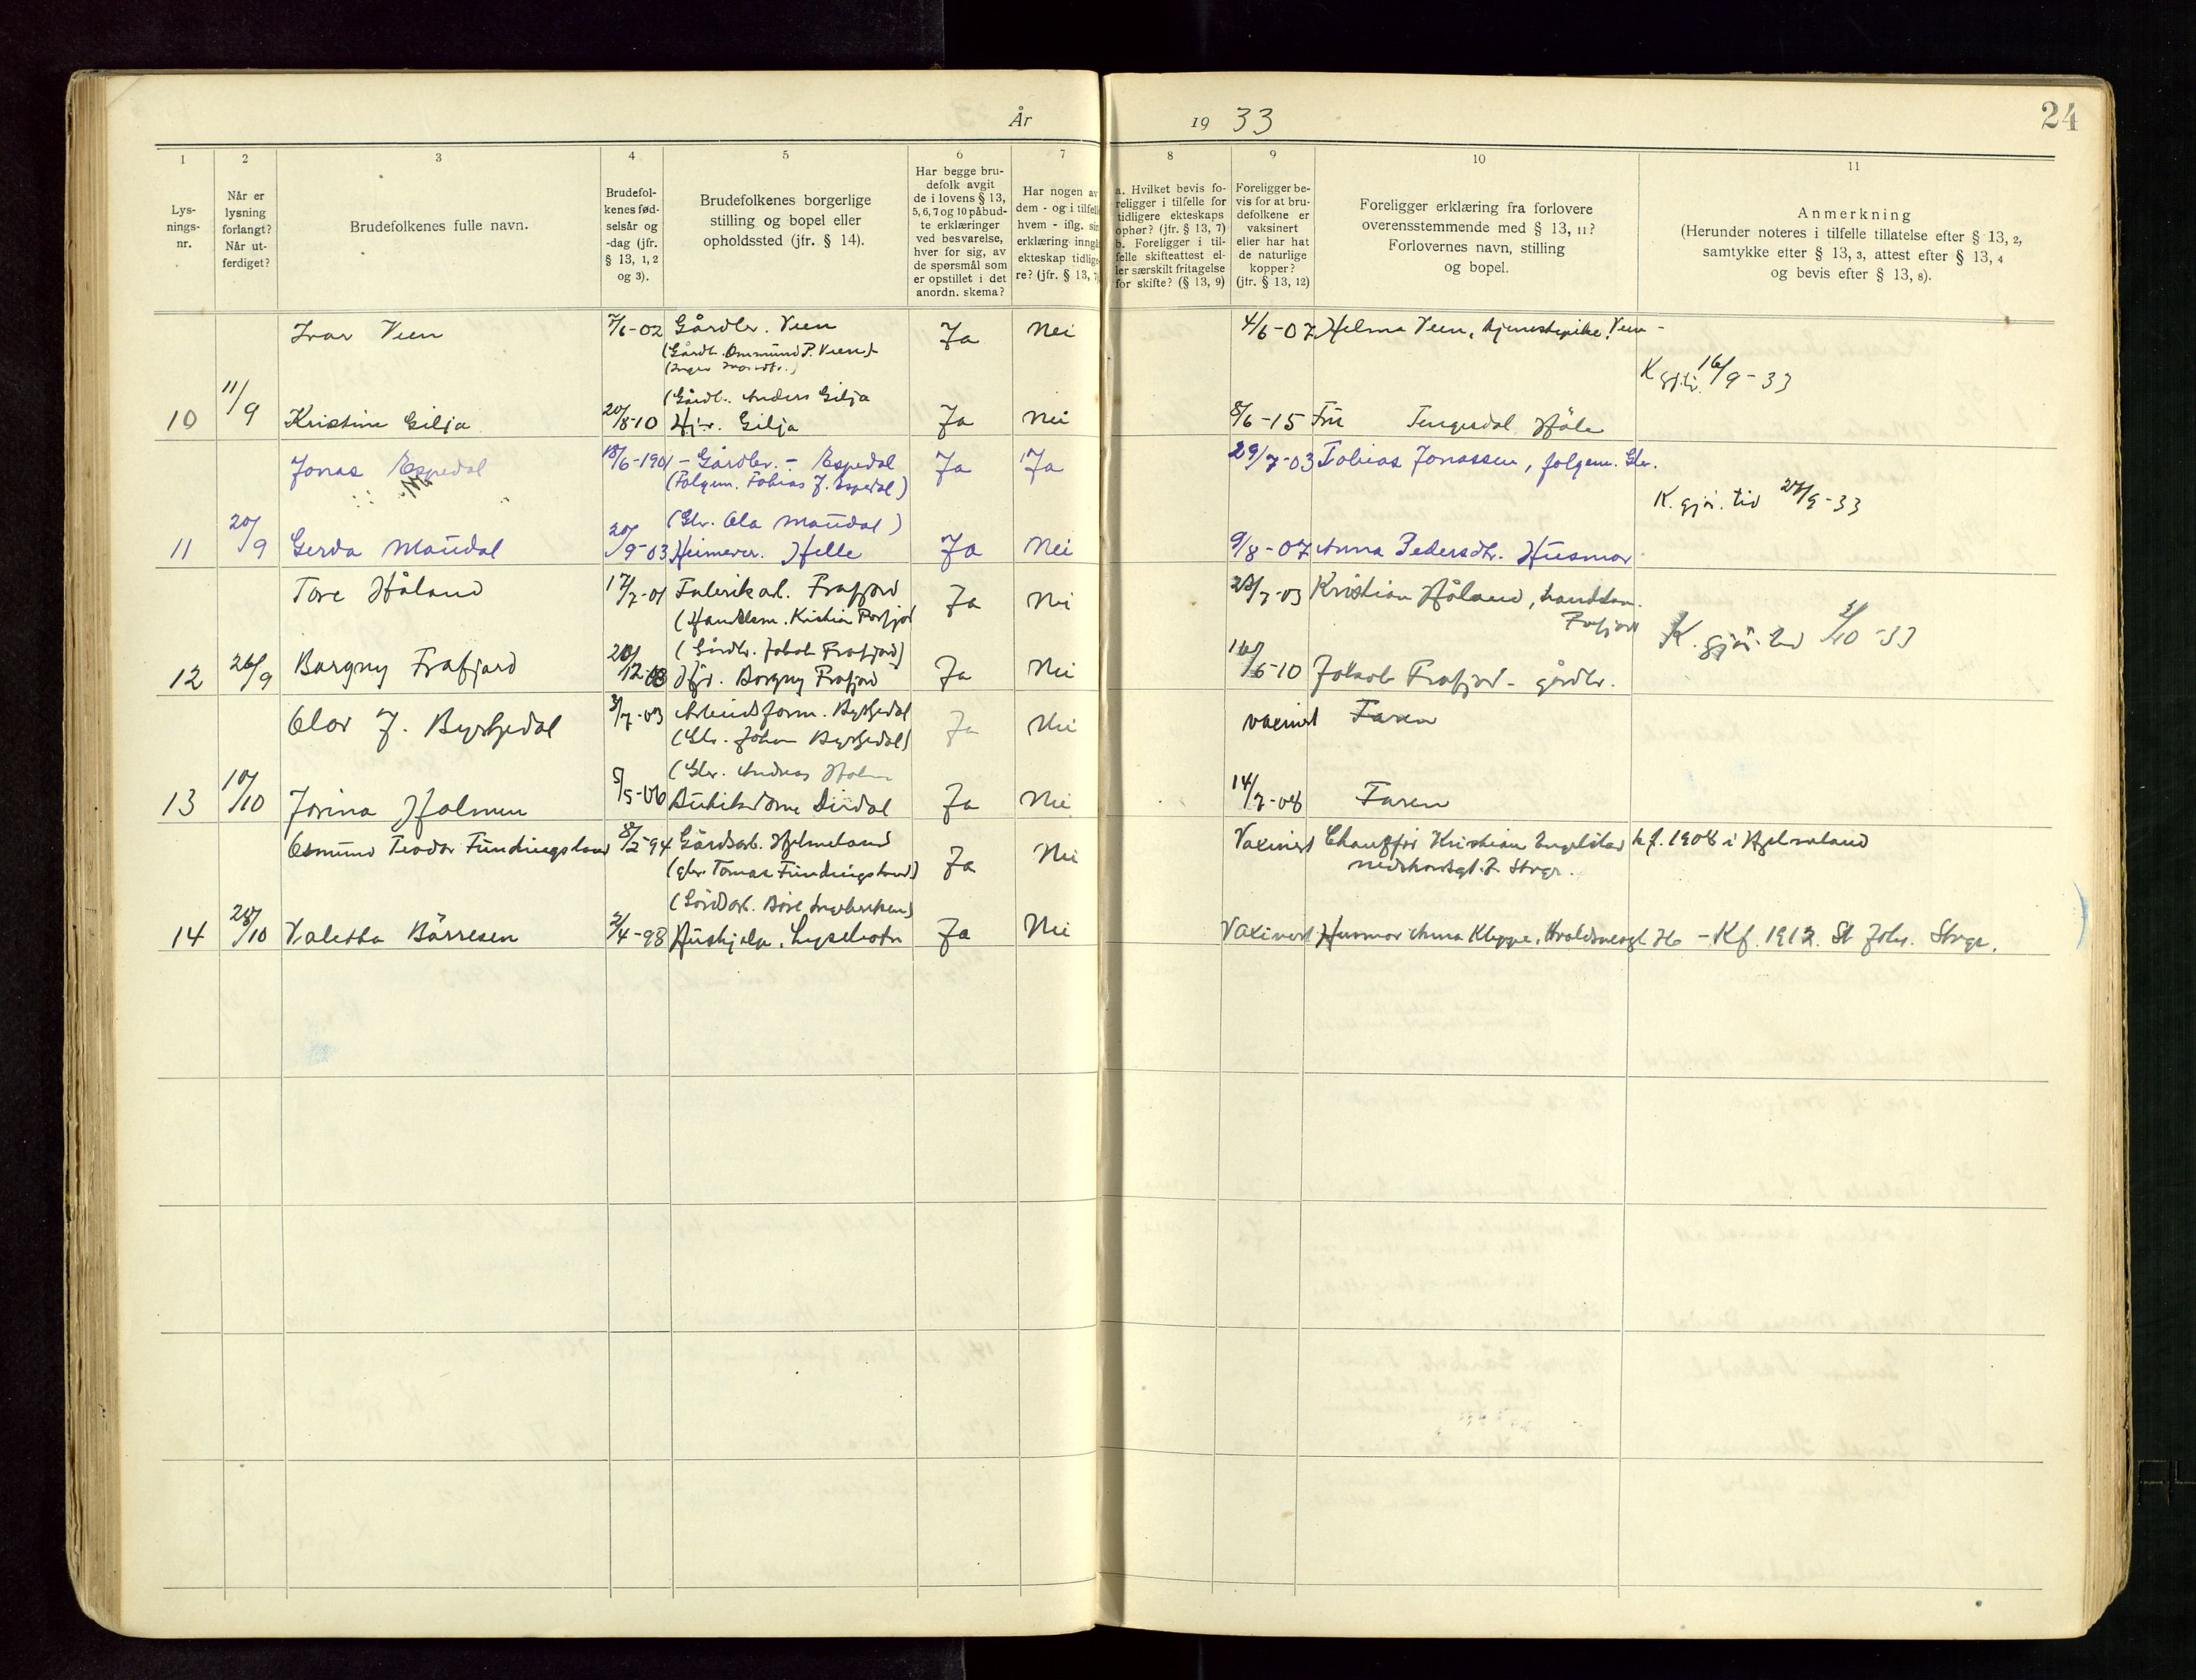 24
År 1933
1
2
3
4
5
6
7
8
9
10
11
Lys-
nings-
nr.
Når er
lysning
forlangt?
Når ut-
ferdiget?
Brudefolkenes fulle navn.
Brudefol-
kenes fød-
selsår og
-dag (jfr.
§ 13, 1, 2
og 3).
Brudefolkenes borgerlige
stilling og bopel eller
opholdssted (jfr. § 14).
Har begge bru-
defolk avgit
de i lovens § 13,
5, 6, 7 og 10 påbud-
te erklæringer
ved besvarelse,
hver for sig, av
de spørsmål som
er opstillet i det
anordn. skema?
Har nogen av
dem - og i tilfelle
hvem - iflg. sin
erklæring inngå
ekteskap tidlige-
re? (jfr. § 13, 7
a. Hvilket bevis fo-
religger i tilfelle for
tidligere ekteskaps
ophør? (jfr. § 13, 7)
b. Foreligger i til-
felle skifteattest el-
ler særskilt fritagelse
for skifte? (§ 13, 9)
Foreligger be-
vis for at bru-
defolkene er
vaksinert
eller har hat
de naturlige
kopper?
(jfr. § 13, 12)
Foreligger erklæring fra forlovere
overensstemmende med § 13, 11?
Forlovernes navn, stilling
og bopel.
Anmerkning
(Herunder noteres i tilfelle tillatelse efter § 13, 2,
samtykke efter § 13, 3, attest efter § 13, 4
og bevis efter § 13, 8).
Ivar Veen 7/6-02 Gårdbr. Veen Ja Nei 4/6-07 Helma Veen, tjenestepike, Veen -
(Gårdb. Ommund P. Veen)
K 16/9-33
(Gårdb. Anders Gilja
10 11/9 Kristine Gilja 20/8-10 Gilja Ja Nei 8/6-15 Fru Tengesdal Håle
Jonas Espedal 18/6-1901 - Gårdbr. - Espedal Ja Ja 29/7-03 Tobias Jonassen, folgem.
(Folgem. Tobias J. Espedal)
K. gjor. tid 27/9-33
(Gbr. Ola Maudal)
11 20/9 Gerda Maudal 20/9-03 Helle Ja Nei 9/8-07 Anna Pedersdtr. Husmor
Tore Håland 17/7-01 Fabrikarb. Frafjord Ja Nei 28/7-03 Kristian Håland, handelsm.
(Handelsm. Kristian Frafjord Frafjord
K. gjor. tid 3/10-33
(Gårdbr. Jakob Frafjord)
12 26/9 Borgny Frafjord 20/12-08 Borgny Frafjord Ja Nei 16/6-10 Jakob Frafjord - gårdbr.
Olav J. Byrkjedal 3/7-03 Arbeidsform. Byrkjedal Ja Nei vaxinert Faren
(Gbr. Johan Byrkjedal)
(Gbr. Andreas Holm
13 10/10 Jorina Holmen 5/5-06 Butikkdame Dirdal Ja Nei 14/7-08 Faren
Osmund Teodor Fundingsland 8/2-94 Gårdsarb. Hjelmeland Ja Nei Vaxinert Chauffør Kristian Engelstad kf. 1908 i Hjelmeland
(gbr. Tomas Fundingsland)
(Gårdsarb. Børe Ingebretsen)
14 28/10 Valetta Børresen 2/4-98 Hushjelp. Lysebotn Ja Nei Vaxinert Husmor Anna Kleppe, - Kf. 1912. St Johs. Stvgr.